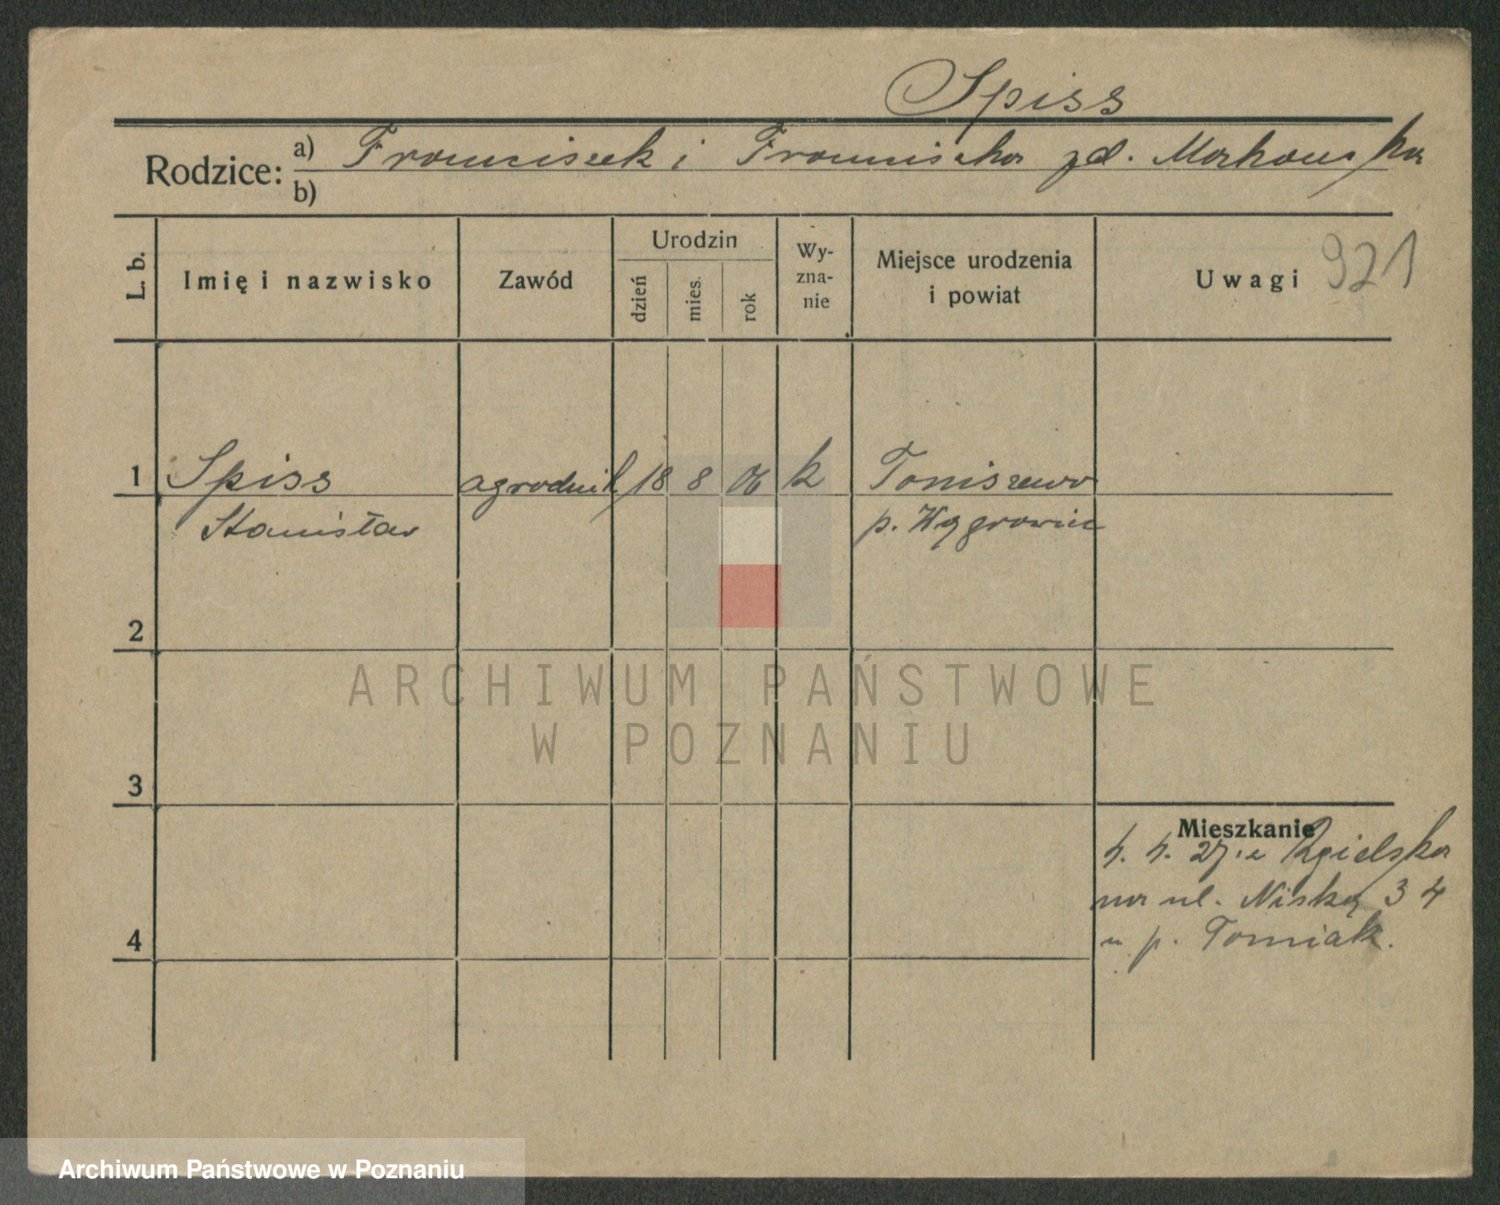 Spiss
Rodzice: a) Franciszek i Franciszka zd. Markowska
b)
L. b.
Imię i nazwisko
Zawód
Urodzin
dzień
mies.
rok
Wy-
zna-
nie
Miejsce urodzenia
i powiat
Uwagi 921
1 Spiss agrodnik 18 8 06 k Toniszewo
Stanisław p. Wągrowiec
2
ARCHIWUM PAŃSTWOWE
W POZNANIU
3
Mieszkanie
4. 4. 27. z Zgielska
na ul. Niską 34
4
u p. Tomiak.
Archiwum Państwowe w Poznaniu